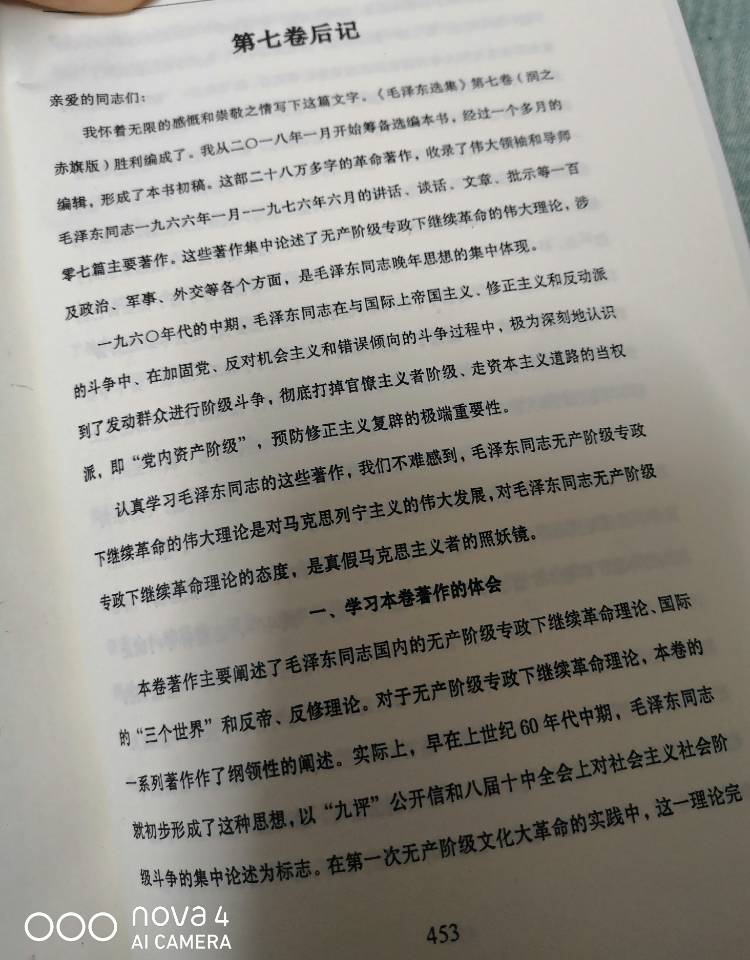 第七卷后记
亲爱的同志们：
我怀着无限的感慨和崇敬之情写下这篇文字。《毛泽东选集》第七卷（润之
赤旗版）胜利编成了。我从二〇一八年一月开始筹备选编本书，经过一个多月的
编辑，形成了本书初稿。这部二十八万多字的革命著作，收录了伟大领袖和导师
毛泽东同志一九六六年一月-一九七六年六月的讲话、谈话、文章、批示等一百
零七篇主要著作。这些著作集中论述了无产阶级专政下继续革命的伟大理论，涉
及政治、军事、外交等各个方面，是毛泽东同志晚年思想的集中体现。
一九六〇年代的中期，毛泽东同志在与国际上帝国主义、修正主义和反动派
的斗争中、在加固党、反对机会主义和错误倾向的斗争过程中，极为深刻地认识
到了发动群众进行阶级斗争，彻底打掉官僚主义者阶级、走资本主义道路的当权
派，即“党内资产阶级”，预防修正主义复辟的极端重要性。
认真学习毛泽东同志的这些著作，我们不难感到，毛泽东同志无产阶级专政
下继续革命的伟大理论是对马克思列宁主义的伟大发展，对毛泽东同志无产阶级
专政下继续革命理论的态度，是真假马克思主义者的照妖镜。
一、学习本卷著作的体会
本卷著作主要阐述了毛泽东同志国内的无产阶级专政下继续革命理论、国际
的“三个世界”和反帝、反修理论。对于无产阶级专政下继续革命理论，本卷的
一系列著作作了纲领性的阐述。实际上，早在上世纪60年代中期，毛泽东同志
就初步形成了这种思想，以“九评”公开信和八届十中全会上对社会主义社会阶
级斗争的集中论述为标志。在第一次无产阶级文化大革命的实践中，这一理论完
453
nova 4
AI CAMERA